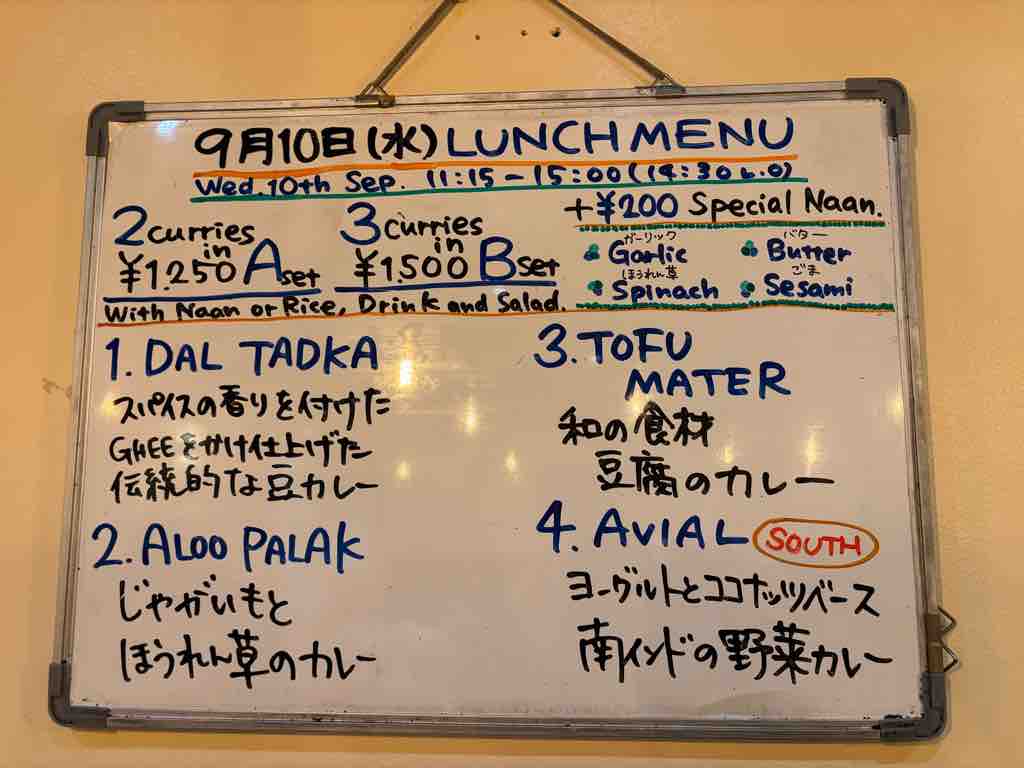 9月10日(水) LUNCH MENU
Wed. 10th Sep. 11:15-15:00 (14:30 L.O)
2 curries
in
¥1.250 A set
3 curries
in
¥1.500 B set
With Naan or Rice, Drink and Salad.
+¥200 Special Naan.
ガーリック
Garlic
バター
Butter
ほうれん草
Spinach
ごま
Sesami
1. DAL TADKA
スパイスの香りを付けた
GHEEをかけ仕上げた
伝統的な豆カレー
2. ALOO PALAK
じゃがいもと
ほうれん草のカレー
3. TOFU
MATER
和の食材
豆腐のカレー
4. AVIAL SOUTH
ヨーグルトとココナッツベース
南インドの野菜カレー